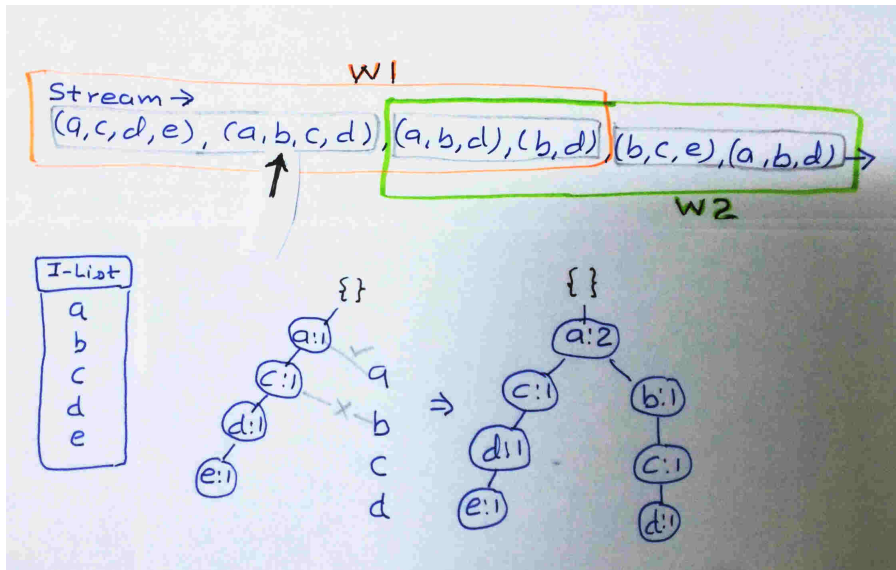 W1
Stream →
(a,c,d,e), (a,b,c,d), (a,b,d),(b,d), (b,c,e),(a,b,d) →
W2
I-List
a
b
c
d
e
{}
a:1
c:1
d:1
e:1
a
b
c
d
⇒
{}
a:2
c:1
b:1
d:1
c:1
e:1
d:1